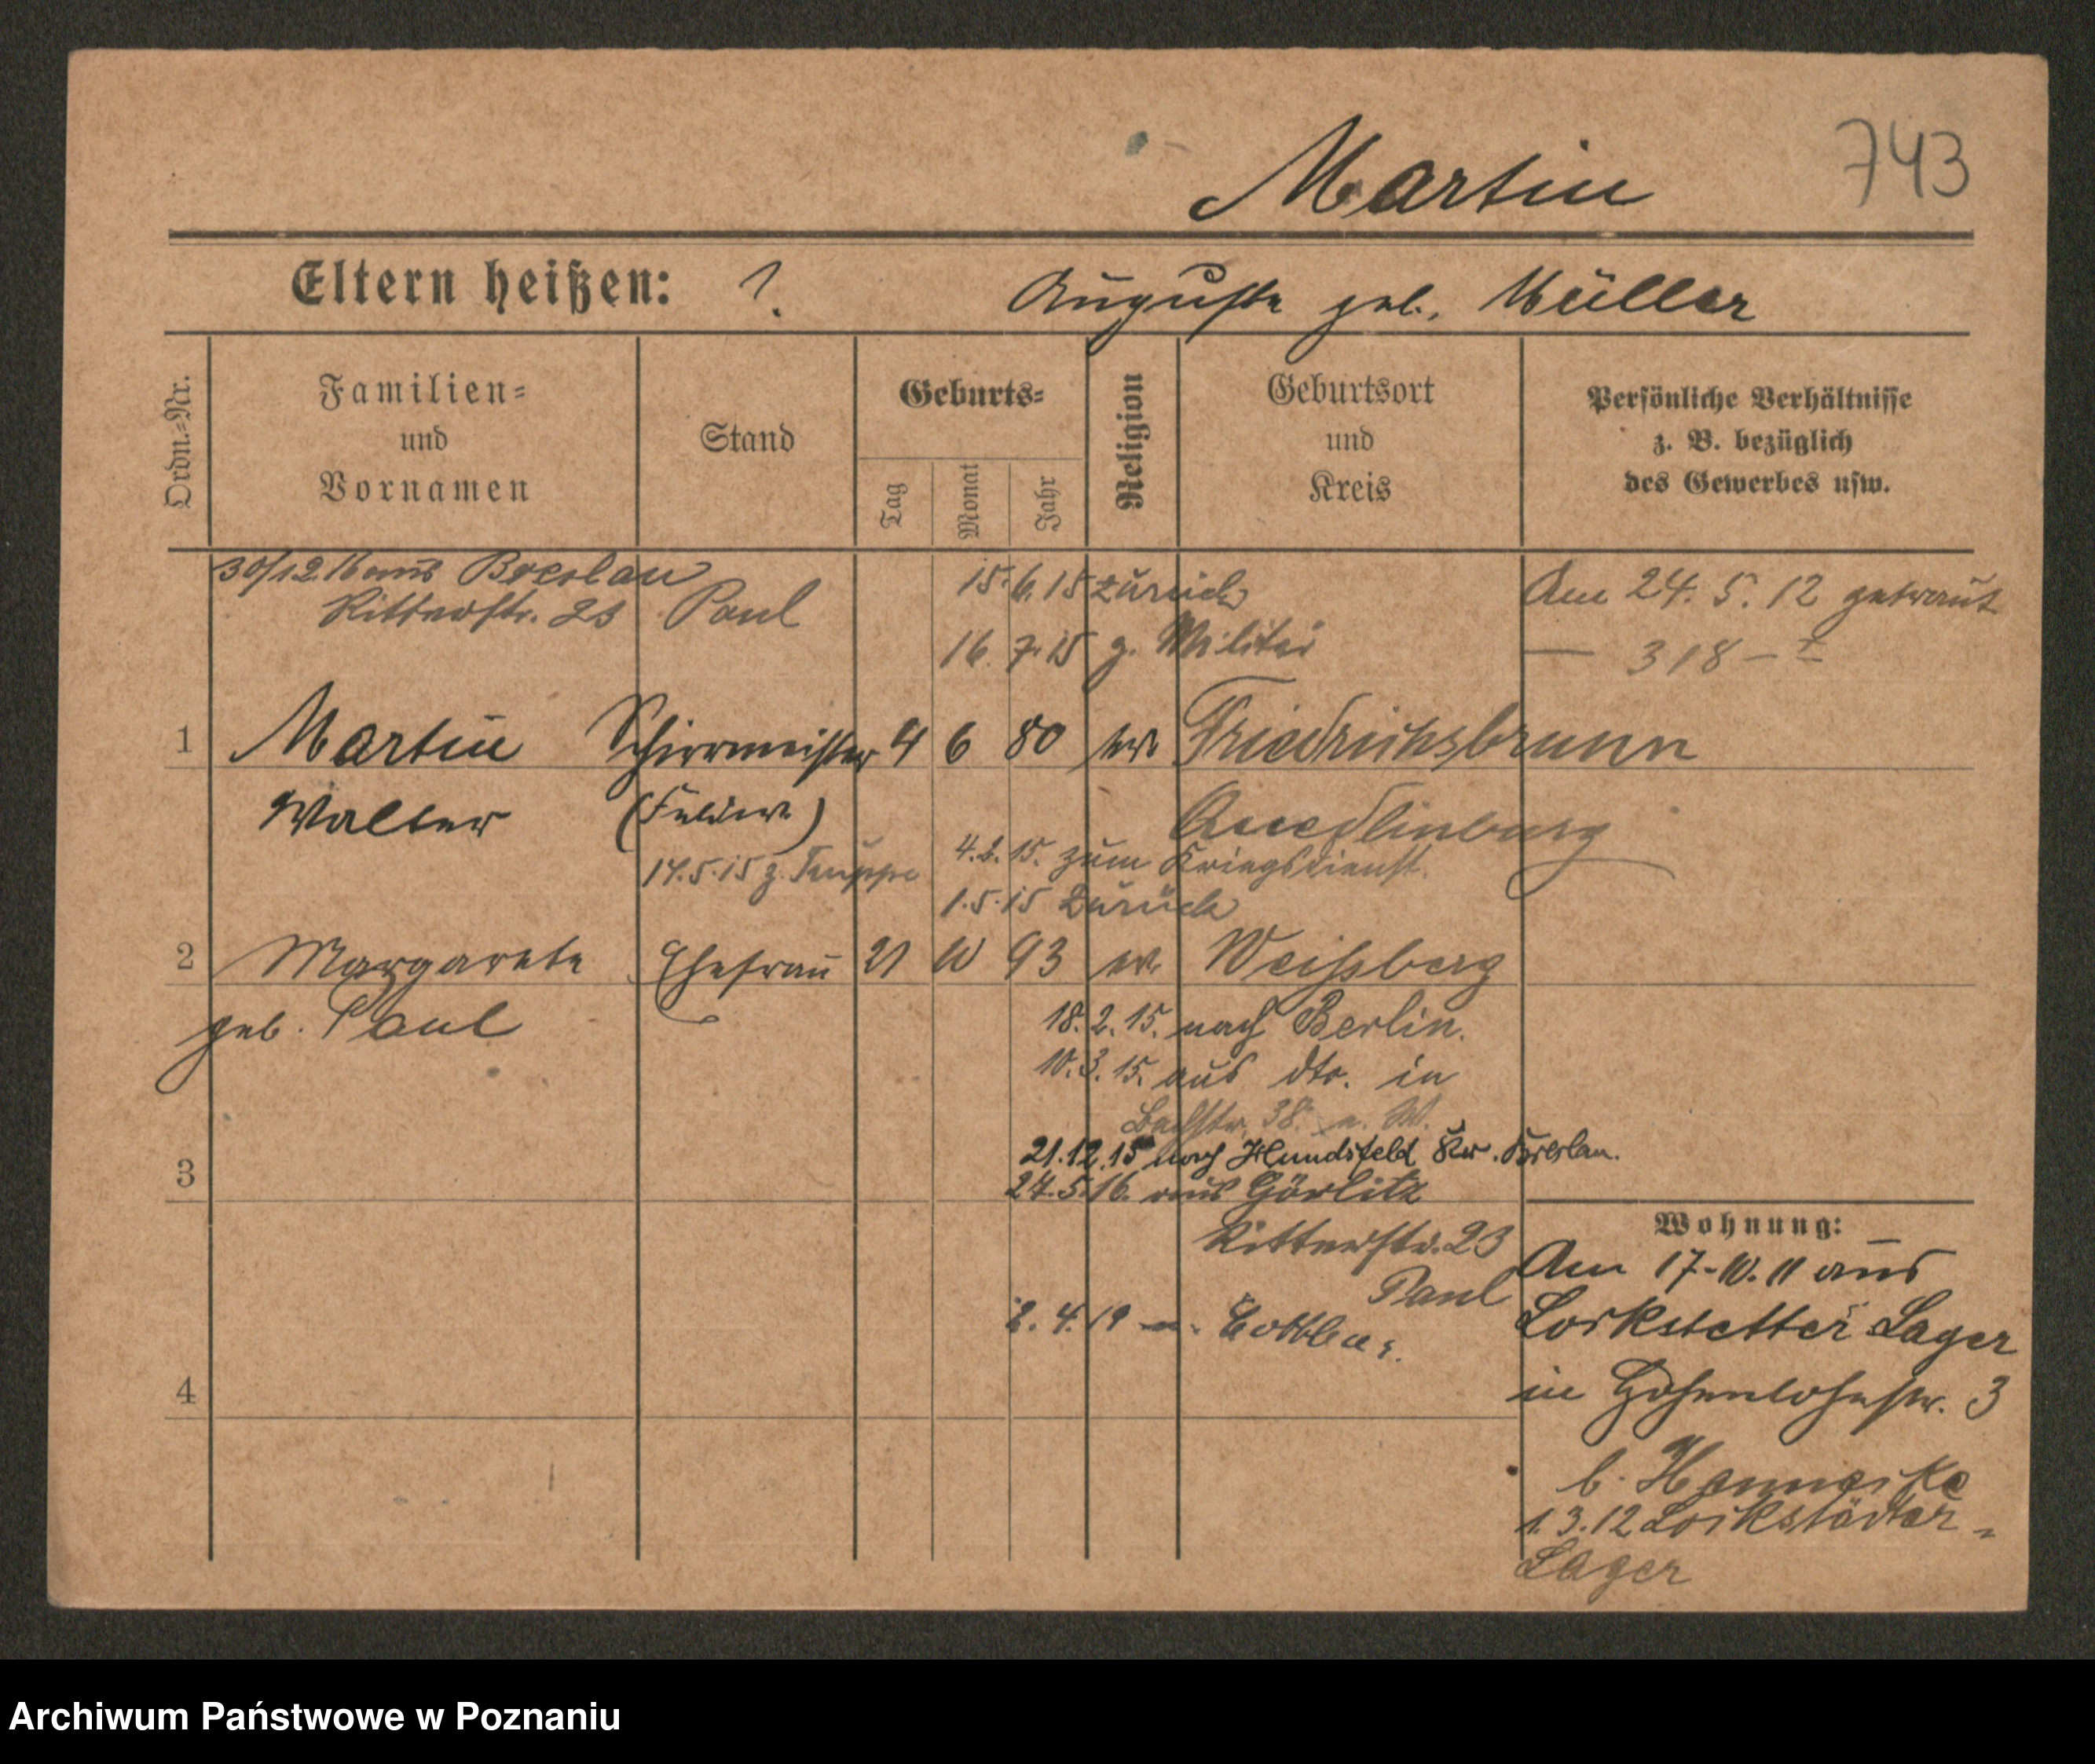 743
Martin
Eltern heißen: ? Auguste geb. Müller
Ordn.=Nr.
Familien=
und
Vornamen
Stand
Geburts=
Tag
Monat
Jahr
Religion
Geburtsort
und
Kreis
Persönliche Verhältnisse
z. B. bezüglich
des Gewerbes usw.
30/12.16 aus Breslau
Ritterstr. 23 Paul
15.6.15 zurück
16.7.15 z. Militär
Am 24.5.12 getraut
— 318 —
1 Martin Schirrmeister 4 6 80 ev. Friedrichsbrunn
Walter (Feldw.) Quedlinburg
14.5.15 z. Truppe
4.2.15. zum Kriegsdienst.
1.5.15 zurück
2 Margarete Ehefrau 21 10 93 ev. Weissberg
geb. Paul
18.2.15. nach Berlin.
10.3.15. aus dto. in
Bachstr. 38. n. W.
21.12.15 nach Hundsfeld Kr. Breslau.
3
24.5.16. aus Görlitz
Ritterstr. 23
Paul
2.4.19 n. Cottbus.
4
Wohnung:
Am 17.10.11 aus
Lorkstetter Lager
in Hohenlohestr. 3
b. Hanneske
1.3.12 Lorkstädter-
Lager
Archiwum Państwowe w Poznaniu